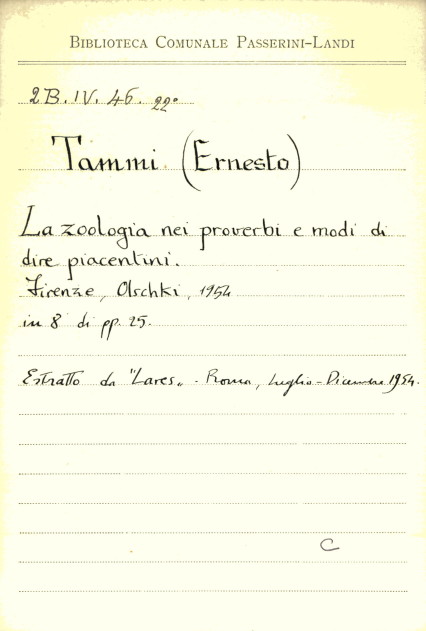 BIBLIOTECA COMUNALE PASSERINI-LANDI
2B.IV. 46. 22°
Tammi (Ernesto)
La zoologia nei proverbi e modi di
dire piacentini.
Firenze, Olschki, 1954
in 8 di pp. 25.
Estratto da "Lares" - Roma, Luglio-Dicembre 1954.
C